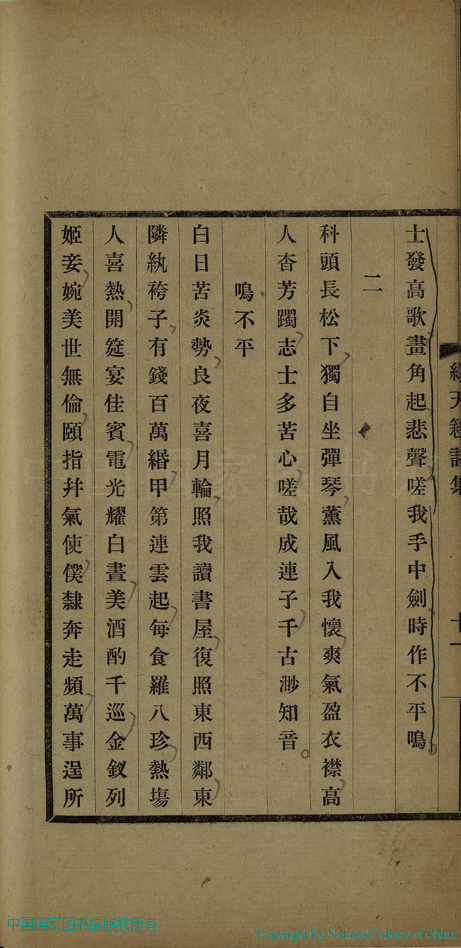 士發高歌畫角起悲聲嗟我手中劍時作不平鳴
二
科頭長松下獨自坐彈琴薰風入我懷爽氣盈衣襟高
人杳芳躅志士多苦心嗟哉成連子千古渺知音
鳴不平
白日苦炎勢良夜喜月輪照我讀書屋復照東西鄰東
隣紈袴子有錢百萬緡甲第連雲起每食羅八珍熱塲
人喜熱開筵宴佳賓電光耀白晝美酒酌千巡金釵列
姬妾婉美世無倫頤指幷氣使僕隸奔走頻萬事逞所
十一
中国国家图书馆版权所有
Copyright By National Library of China